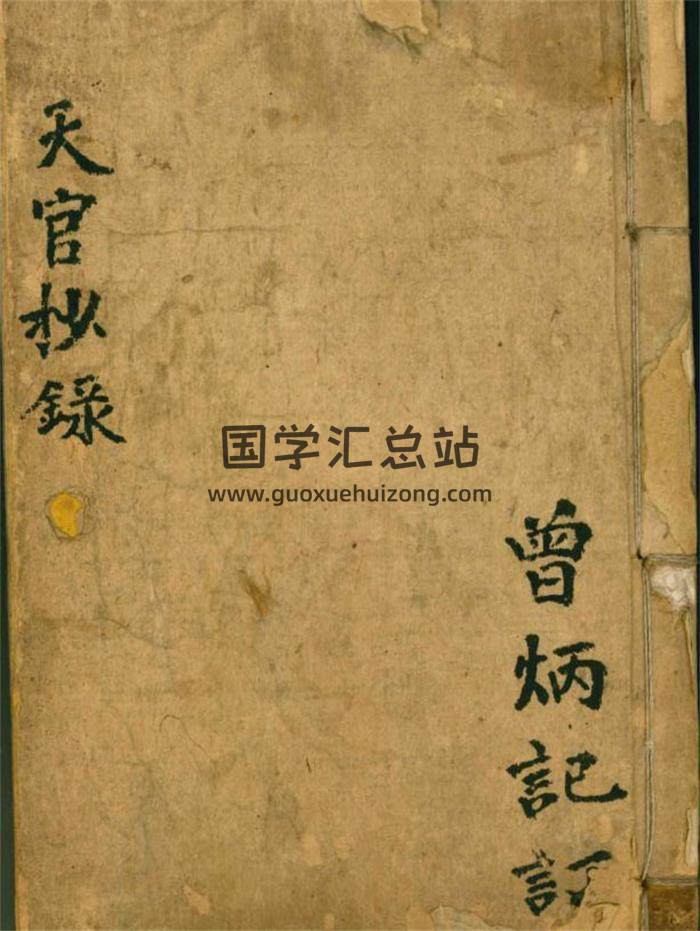 天官抄錄
国学汇总站
www.guoxuehuizong.com
曾炳記